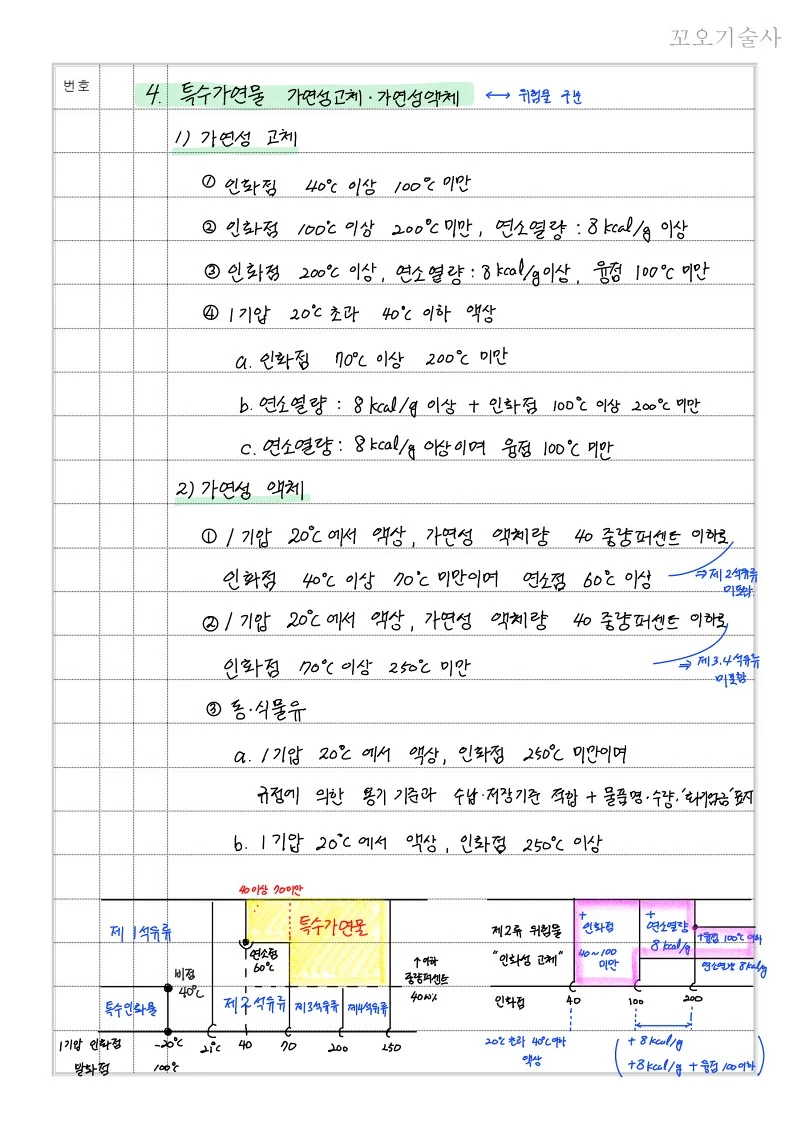 꼬오기술사
번호
4. 특수가연물 가연성고체·가연성액체 ↔ 위험물 구분
1) 가연성 고체
① 인화점 40℃ 이상 100℃ 미만
② 인화점 100℃ 이상 200℃ 미만, 연소열량 : 8 kcal/g 이상
③ 인화점 200℃ 이상, 연소열량 : 8 kcal/g 이상, 융점 100℃ 미만
④ 1기압 20℃ 초과 40℃ 이하 액상
a. 인화점 70℃ 이상 200℃ 미만
b. 연소열량 : 8 kcal/g 이상 + 인화점 100℃ 이상 200℃ 미만
c. 연소열량 : 8 kcal/g 이상이며 융점 100℃ 미만
2) 가연성 액체
① 1기압 20℃에서 액상, 가연성 액체량 40 중량퍼센트 이하로
인화점 40℃ 이상 70℃ 미만이며 연소점 60℃ 이상
⇒ 제2석유류
미포함.
② 1기압 20℃에서 액상, 가연성 액체량 40 중량퍼센트 이하로
인화점 70℃ 이상 250℃ 미만
⇒ 제3.4석유류
미포함
③ 동·식물유
a. 1기압 20℃에서 액상, 인화점 250℃ 미만이며
규정에 의한 용기 기준과 수납·저장기준 적합 + 물품명·수량·"화기엄금" 표지
b. 1기압 20℃에서 액상, 인화점 250℃ 이상
40이상 70미만
제1석유류
특수가연물
연소점
60℃
↑이하
중량퍼센트
40w%
비점
40℃
특수인화물
제2석유류
제3석유류
제4석유류
1기압 인화점 -20℃ 21℃ 40 70 200 250
발화점 100℃
제2류 위험물
"인화성 고체"
+
인화점
40~100
미만
+
연소열량
8kcal/g
+융점 100℃ 이하
연소열량 8kcal/g
인화점 40 100 200
20℃ 초과 40℃ 이하
액상
+8kcal/g
+8kcal/g + 융점 100이하